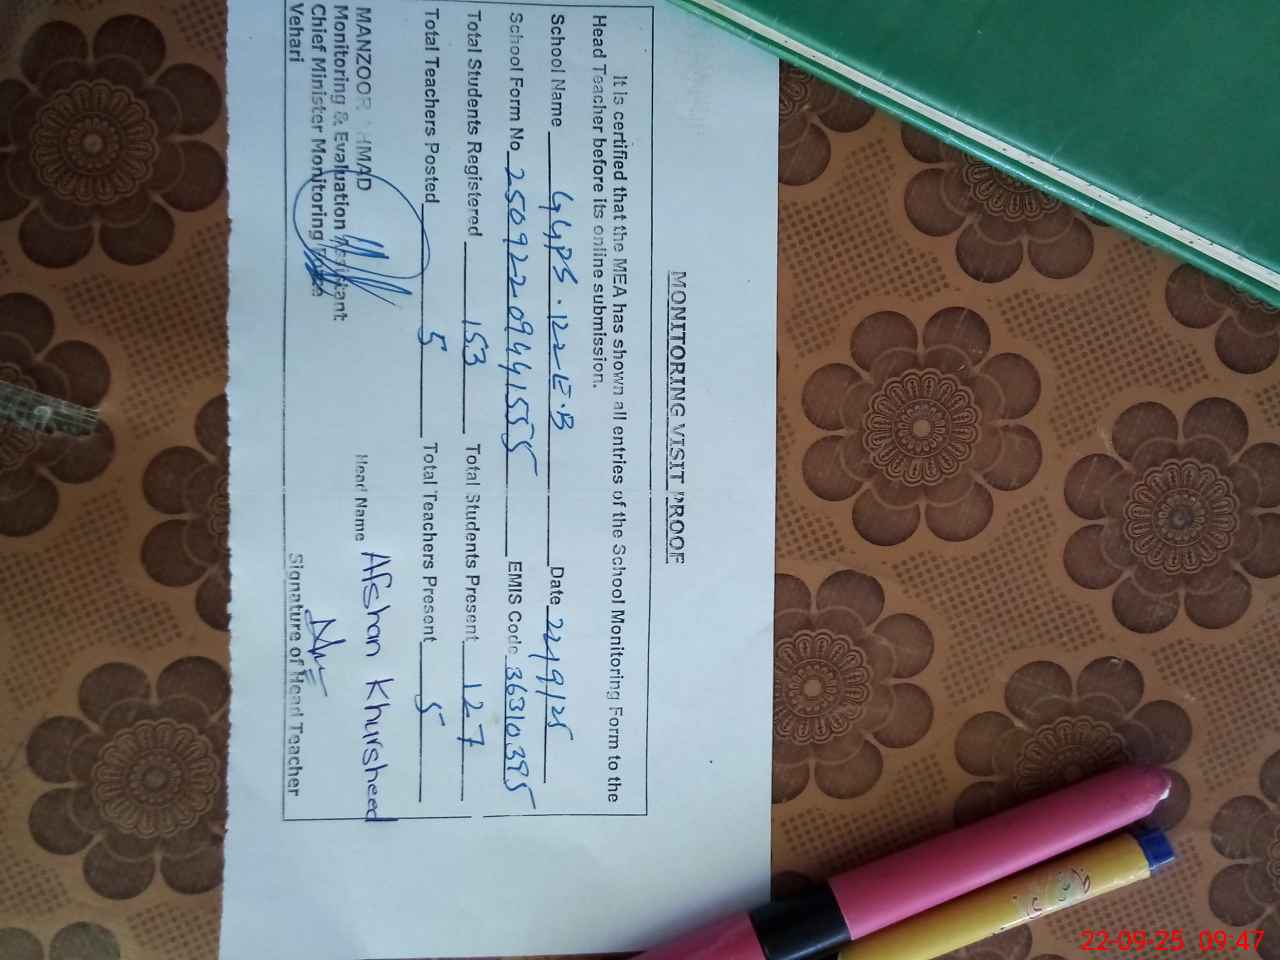 MONITORING VISIT PROOF
It is certified that the MEA has shown all entries of the School Monitoring Form to the
Head Teacher before its online submission.
School Name GGPS . 122 E.B Date 22/9/25
School Form No 25092209441555 EMIS Code 36310395
Total Students Registered 153 Total Students Present 127
Total Teachers Posted 5 Total Teachers Present 5
MANZOOR AHMAD Head Name Afshan Khursheed
Monitoring & Evaluation Assistant
Chief Minister Monitoring
Vehari Signature of Head Teacher
22-09-25 09:47